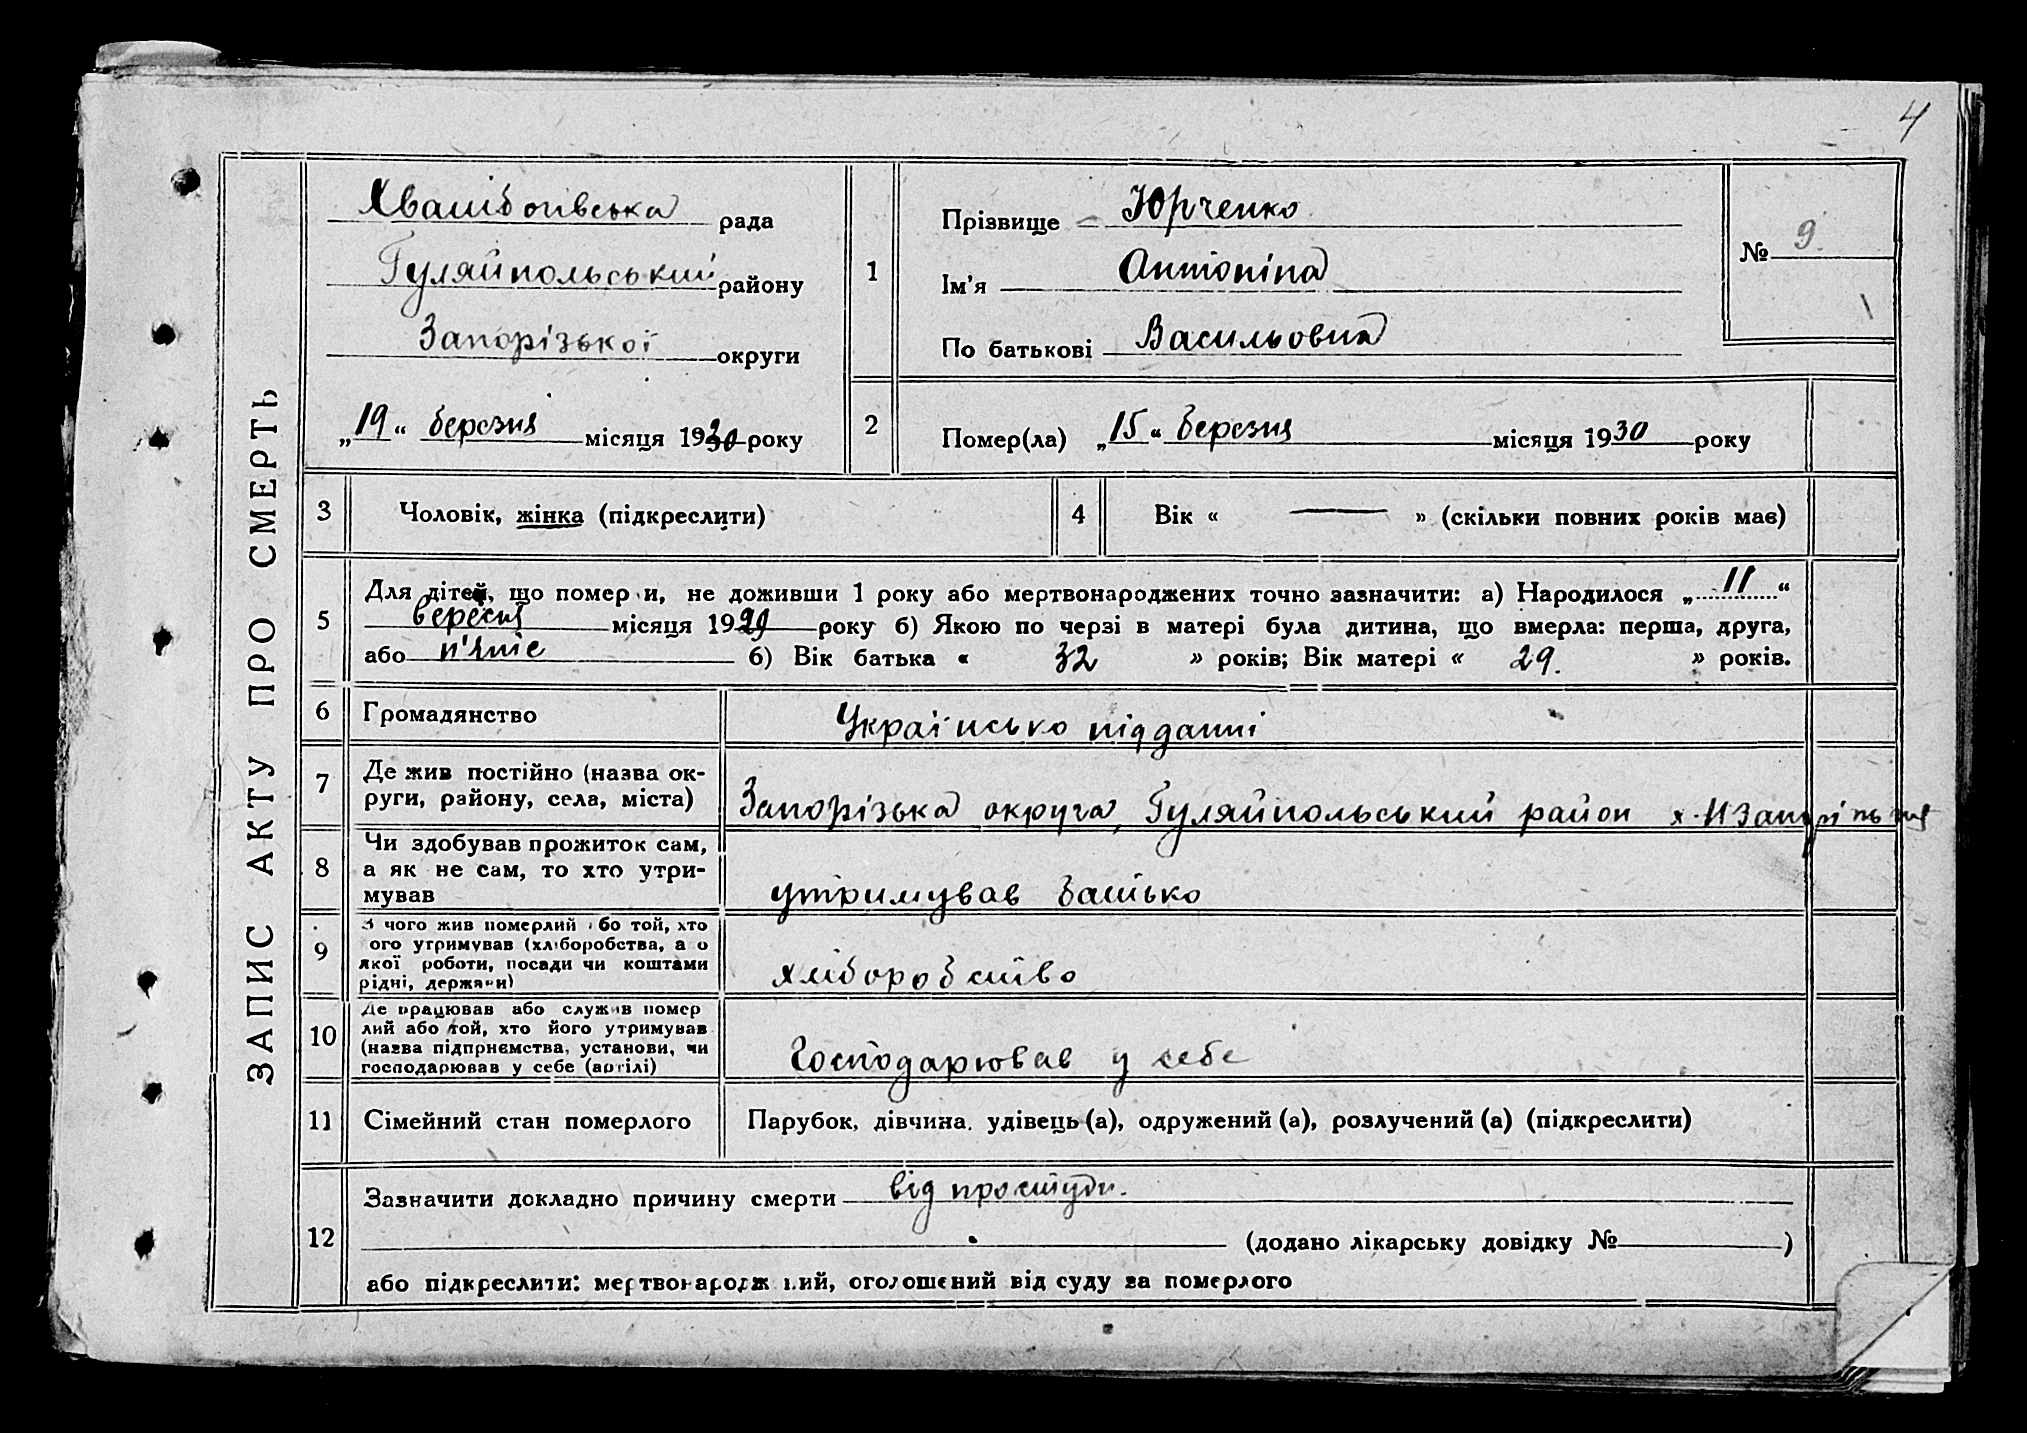 4
ЗАПИС АКТУ ПРО СМЕРТЬ
рада
Гуляйпольський району
Запорізької округи
„19“ березня місяця 1930 року
1
Прізвище Юрченко
Ім'я Антоніна
По батькові Васильовна
№ 9.
2
Помер(ла) „15“ березня місяця 1930 року
3
Чоловік, жінка (підкреслити)
4
Вік « — » (скільки повних років має)
5
Для дітей, що помер и, не доживши 1 року або мертвонароджених точно зазначити: а) Народилося „11“
вересня місяця 1929 року б) Якою по черзі в матері була дитина, що вмерла: перша, друга,
або п'яте б) Вік батька « 32 » років; Вік матері « 29. » років.
6
Громадянство
Українсько підданні
7
Де жив постійно (назва ок-
руги, району, села, міста)
Запорізька округа, Гуляйпольський район х.
8
Чи здобував прожиток сам,
а як не сам, то хто утри-
мував
утримував батько
9
З чого жив померлий або той, хто
ого утримував (хліборобства, а о
якої роботи, посади чи коштами
рідні, держави)
хліборобство
10
Де працював або служив помер
лий або той, хто його утримував
(назва підприємства, установи, чи
господарював у себе (артілі)
Господарював у себе
11
Сімейний стан померлого
Парубок, дівчина, удівець (а), одружений (а), розлучений (а) (підкреслити)
12
Зазначити докладно причину смерти від простуди.
(додано лікарську довідку № )
або підкреслити: мертвонароджений, оголошений від суду за померлого